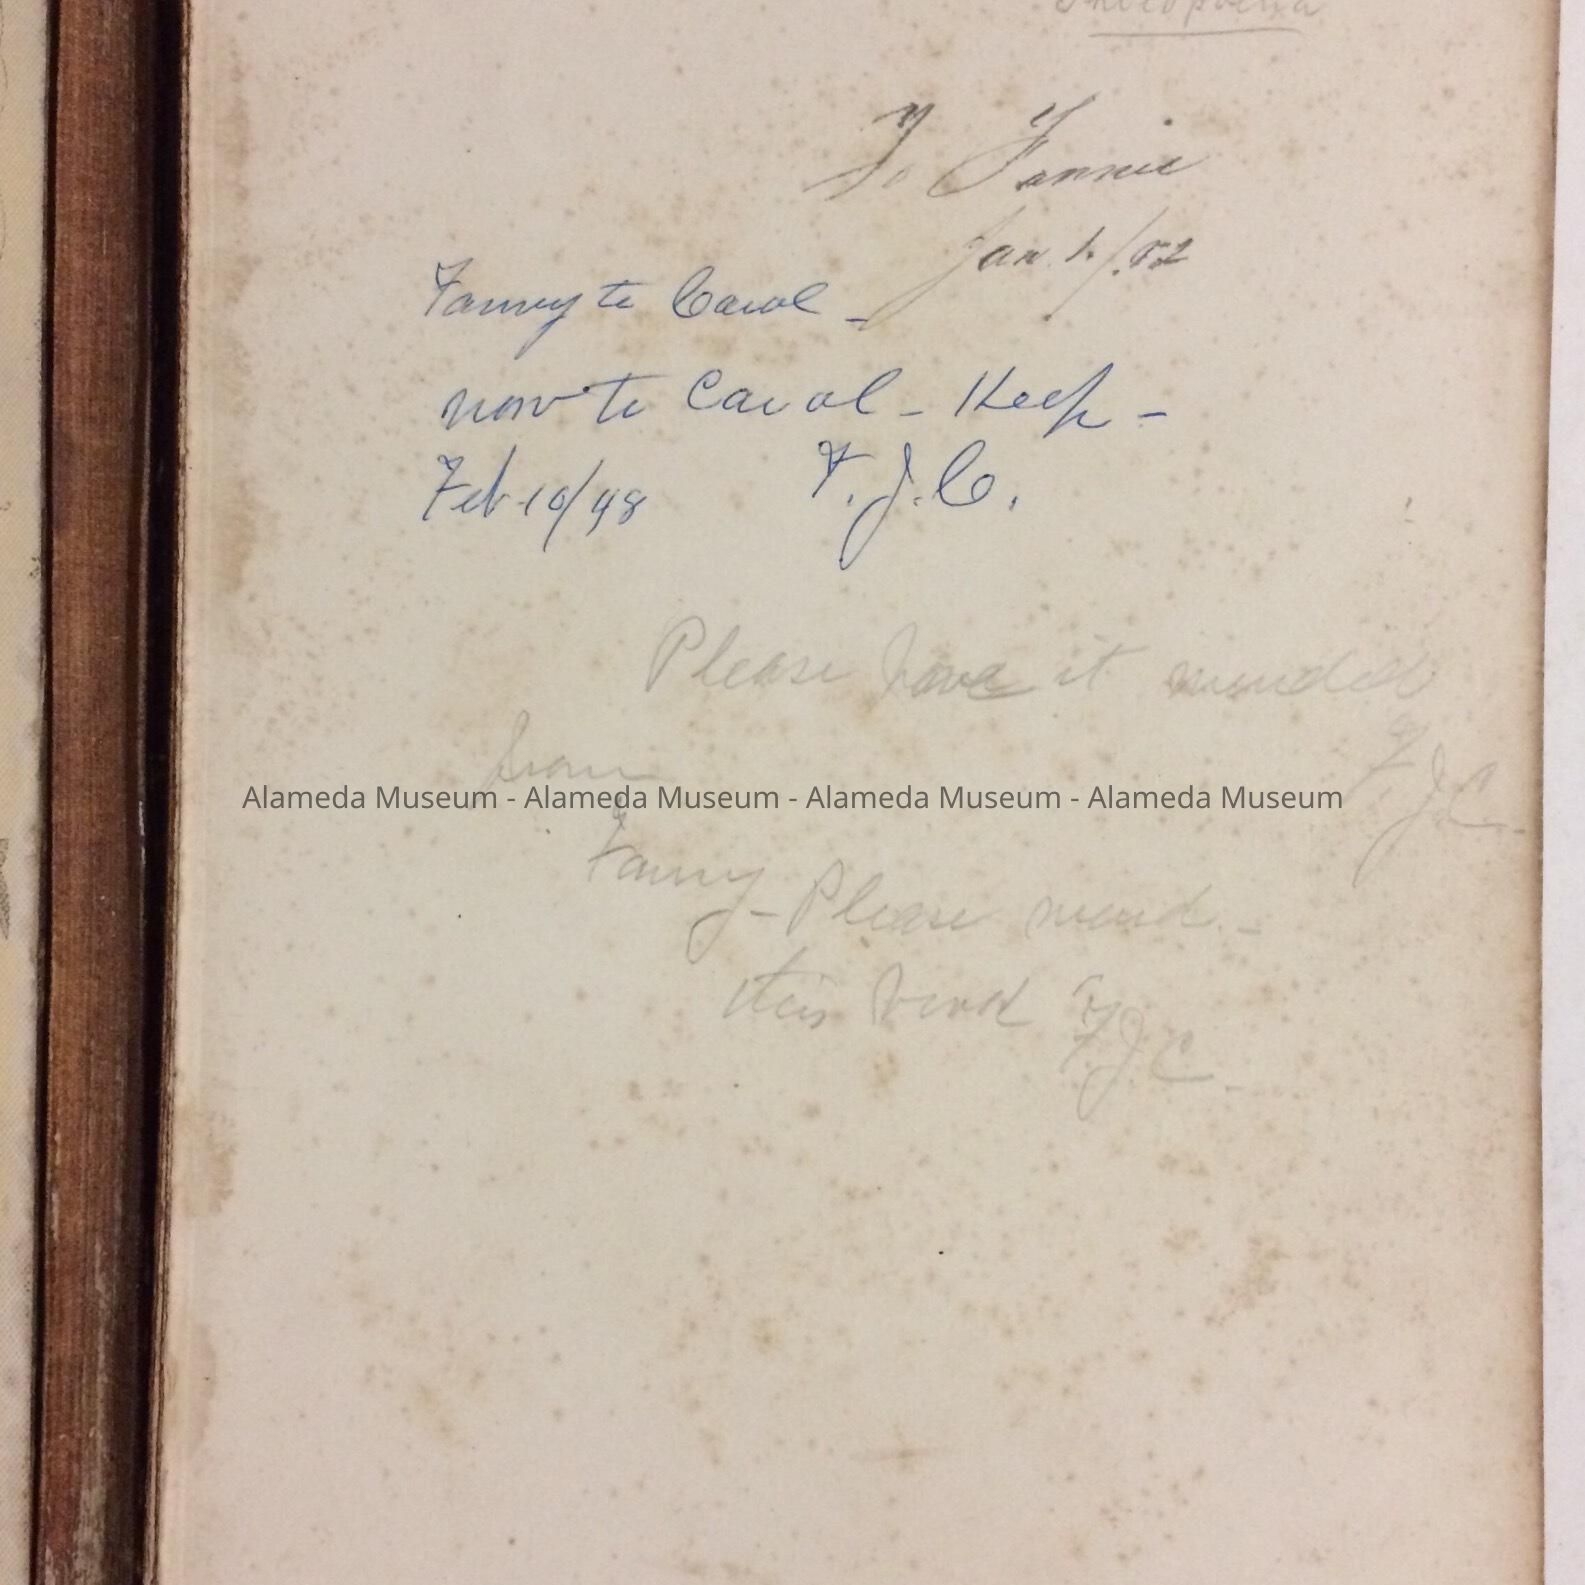 To Fannie
Jan 1./.02
Fanny to Carol -
now to Carol - Keep -
Feb 10/48 F. J. C.
Please have it mended
F.J.C.
from
Alameda Museum - Alameda Museum - Alameda Museum - Alameda Museum
Fanny - Please mend -
this book F.J.C.